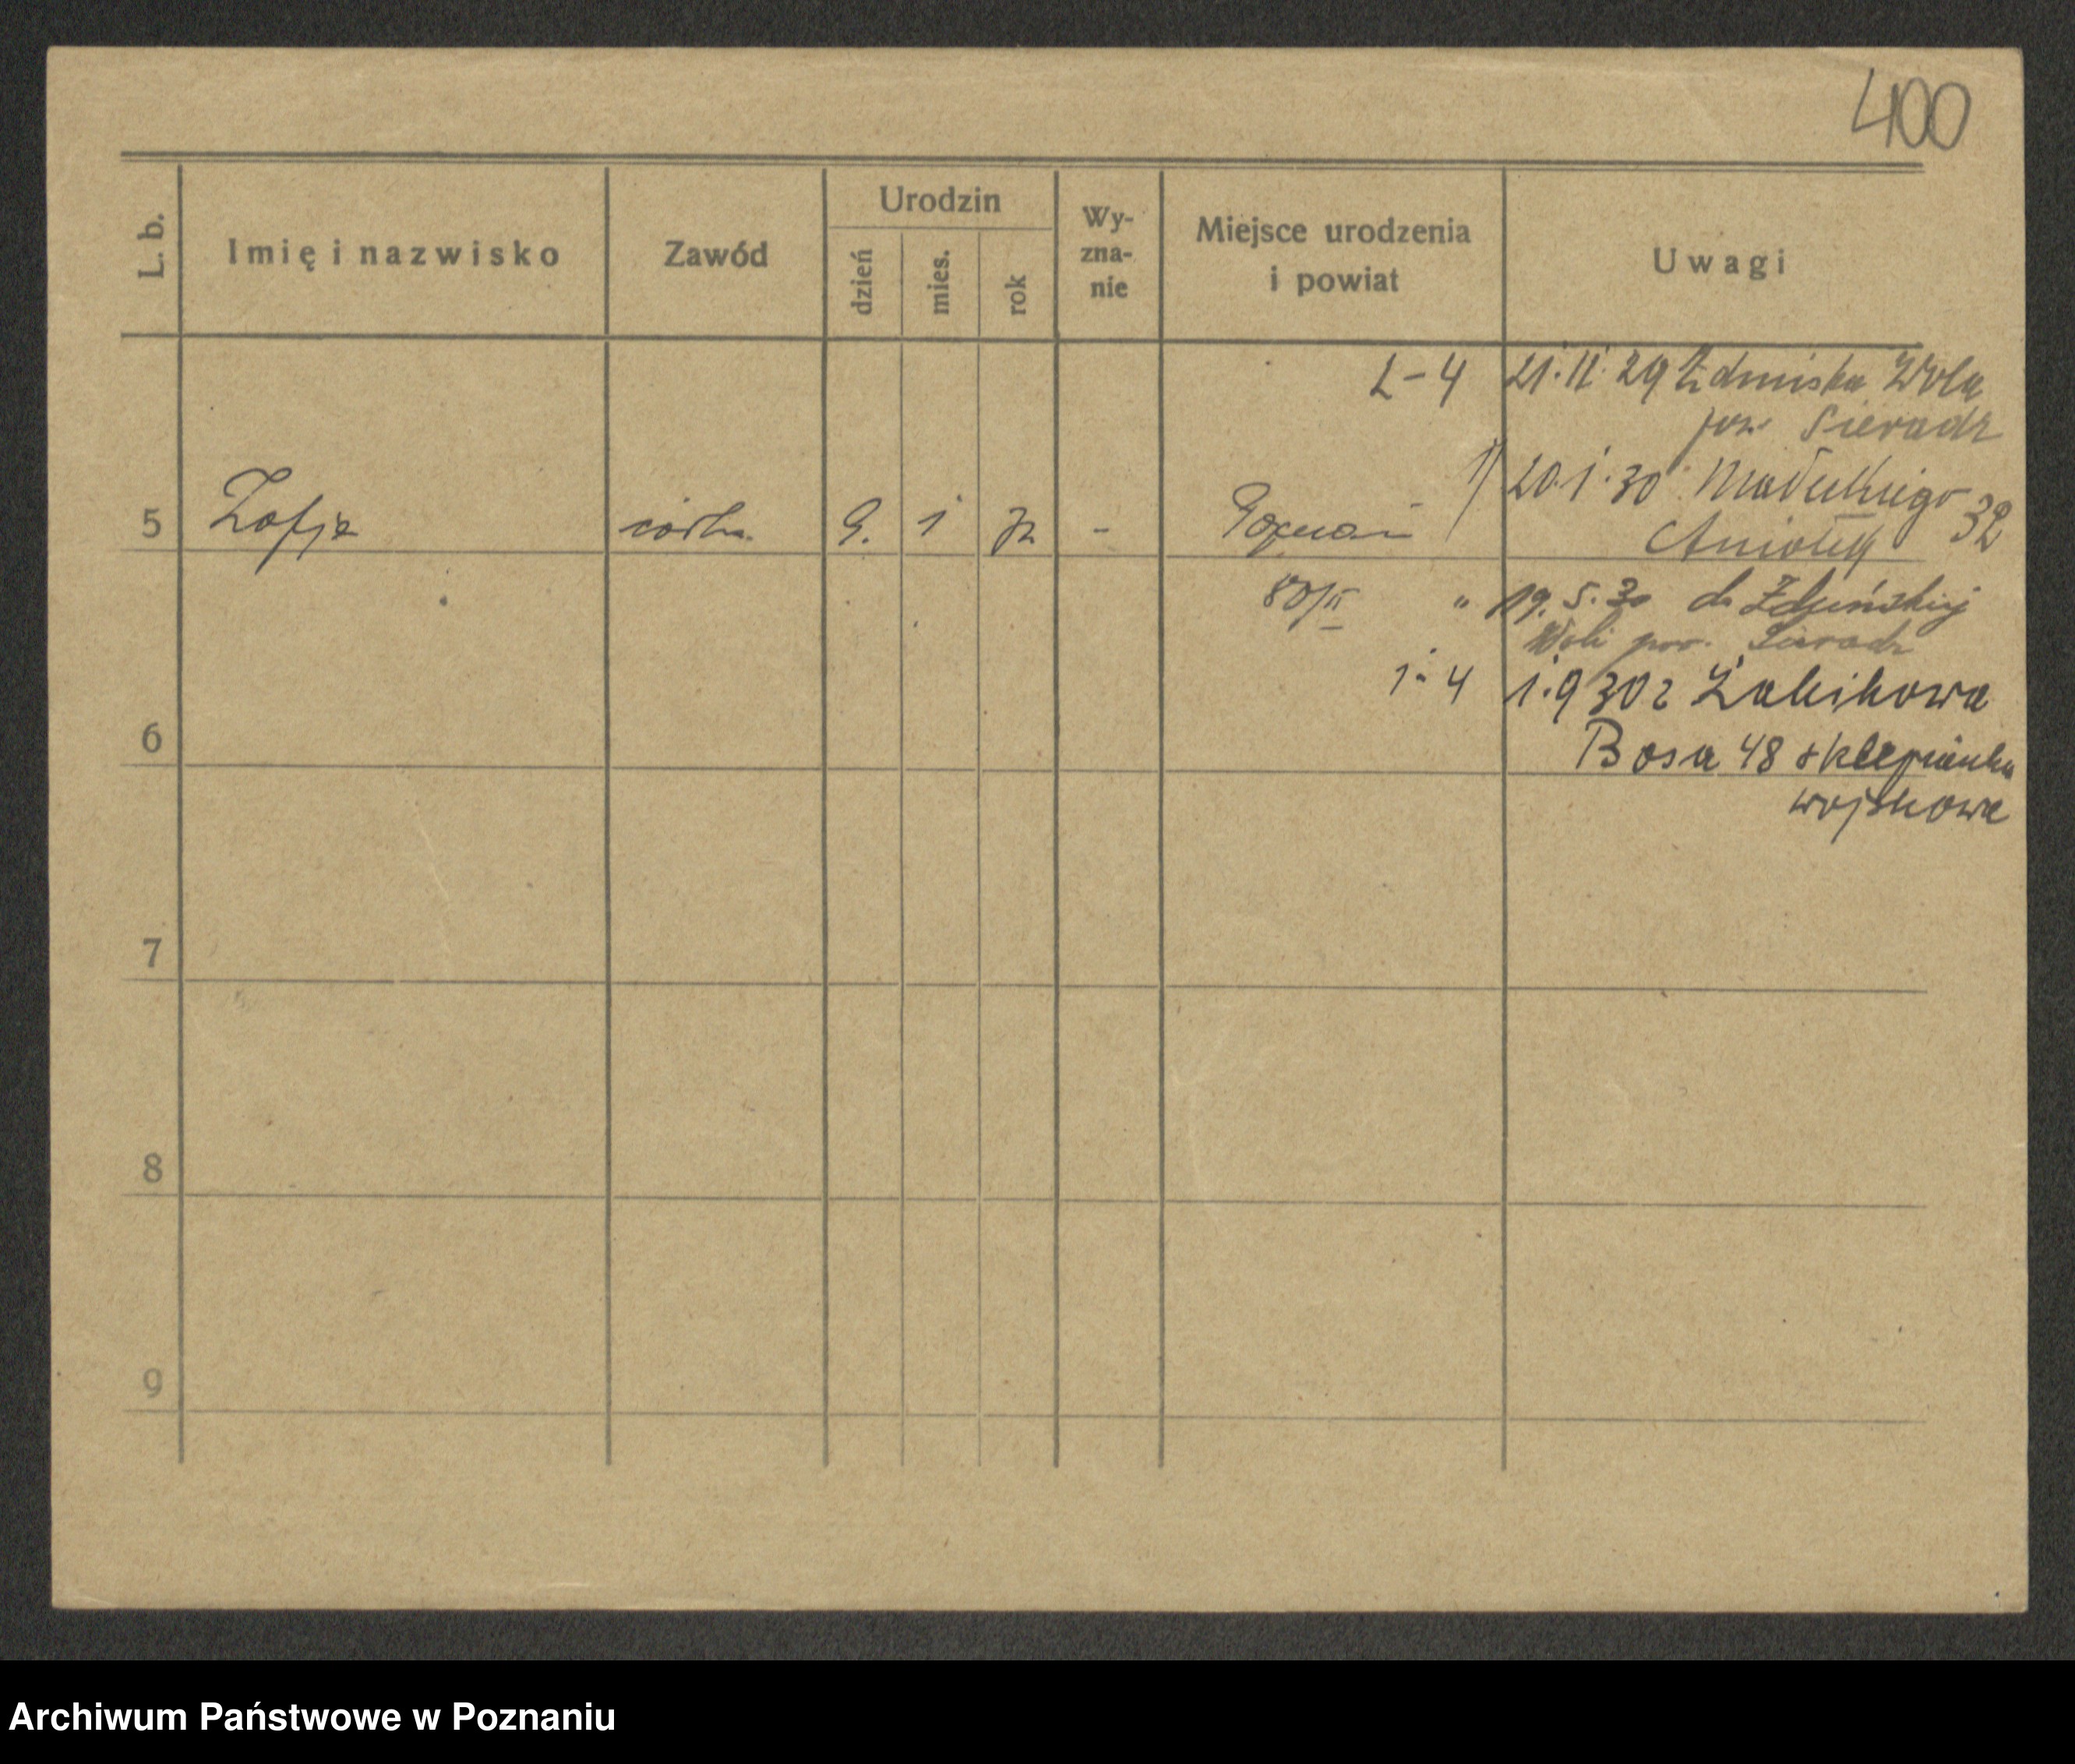 400
L. b.
Imię i nazwisko
Zawód
Urodzin
dzień
mies.
rok
Wy-
zna-
nie
Miejsce urodzenia
i powiat
Uwagi
2-4 21.11.29 Zdunska Wola
pow. Sieradz
5 Zofja córka 9. 1 - Poznań
1) 20.1.30 Małeckiego 32
80/II " 19.5.30 do Zduńskiej
Woli pow. Sieradz
6
1-4 1.9 30 z Żabikowa
Bosa 48
wojskowa
7
8
9
Archiwum Państwowe w Poznaniu